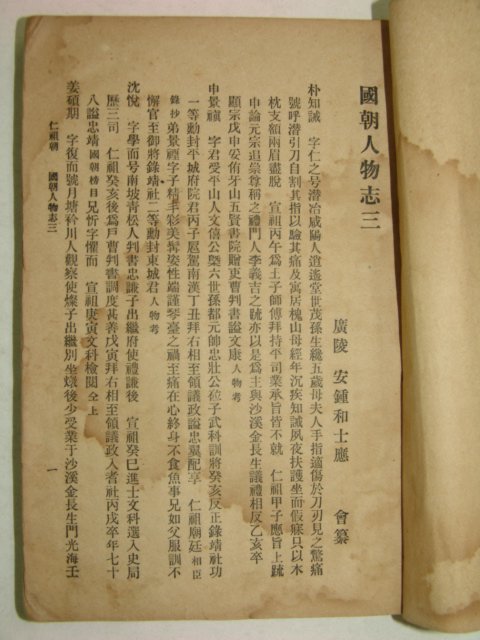 國朝人物志三
廣陵 安鍾和士應 會纂
朴知誡 字仁之号潜冶咸陽人逍遙堂世茂孫生纔五歲母夫人手指適傷於刀刃見之驚痛
號呼潜引刀自割其指以驗其痛及寓居槐山母經年沉疾知誡夙夜扶護坐而假寐只以木
枕支額兩眉盡脫 宣祖丙午爲王子師傅拜持平司業承旨皆不就 仁祖甲子應旨上疏
申論元宗追崇尊稱之禮門人李義吉之疏亦以是爲主與沙溪金長生議禮相反乙亥卒
顯宗戊申妥侑牙山五賢書院贈吏曹判書謚文康 人物考
申景禛 字君受平山人文僖公槩六世孫都元帥忠壯公砬子武科訓將癸亥反正錄靖社功
一等勳封平城府院君丙子扈駕南漢丁丑拜右相至領議政謚忠翼配享 仁祖廟廷 相臣
錄抄 弟景禋字子精丰彩美鬚姿性端謹琴臺之禍至痛在心終身不食魚事兄如父服訓不
懈官至御將錄靖社二等勳封東城君 人物考
沈悅 字學而号南坡靑松人判書忠謙子出繼府使禮謙後 宣祖癸巳進士文科選入史局
歷三司 仁祖癸亥後爲戶曹判書調度甚善戊寅拜右相至領議政入耆社丙戌卒年七十
八謚忠靖 國朝榜目 兄忻字懼而 宣祖庚寅文科檢閱 仝上
姜碩期 字復而號月塘衿川人觀察使燦子出繼別坐燉後少受業于沙溪金長生門光海壬
仁祖朝 國朝人物志三 一